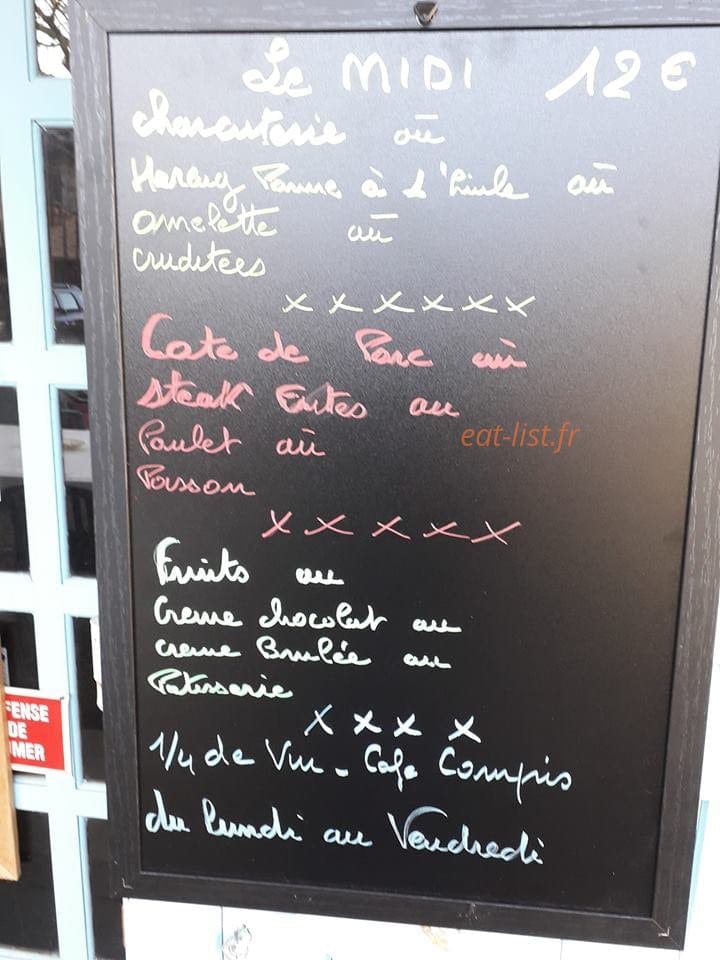 Le MIDI 12€
charcuterie ou
Hareng Pomme à l'huile ou
omelette ou
cruditees
x x x x x x
Cote de Porc ou
steak Frites ou
Poulet ou
Poisson
eat-list.fr
x x x x x
Fruits ou
Creme chocolat ou
creme Brulée ou
Patisserie
x x x x
1/4 de Vin - Cafe Compris
du lundi au Vendredi
FENSE
DE
MER